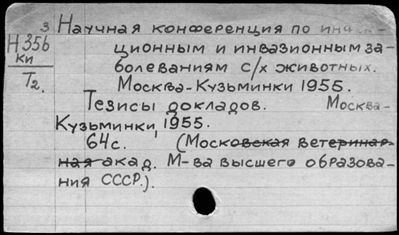 З Научная конференция по инфек-
Н356 ционным и инвазионным за-
ки болеваниям с/х животных.
Т2. Москва-Кузьминки 1955.
Тезисы докладов. Москва-
Кузьминки, 1955.
64с. (Московская ветеринар-
ная акад. М-ва высшего образова-
ния СССР.).